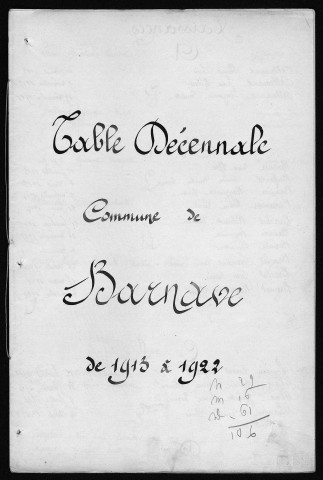 Table Décennale
Commune de
Barnave
de 1913 à 1922
N 29
M 16
D 61
106